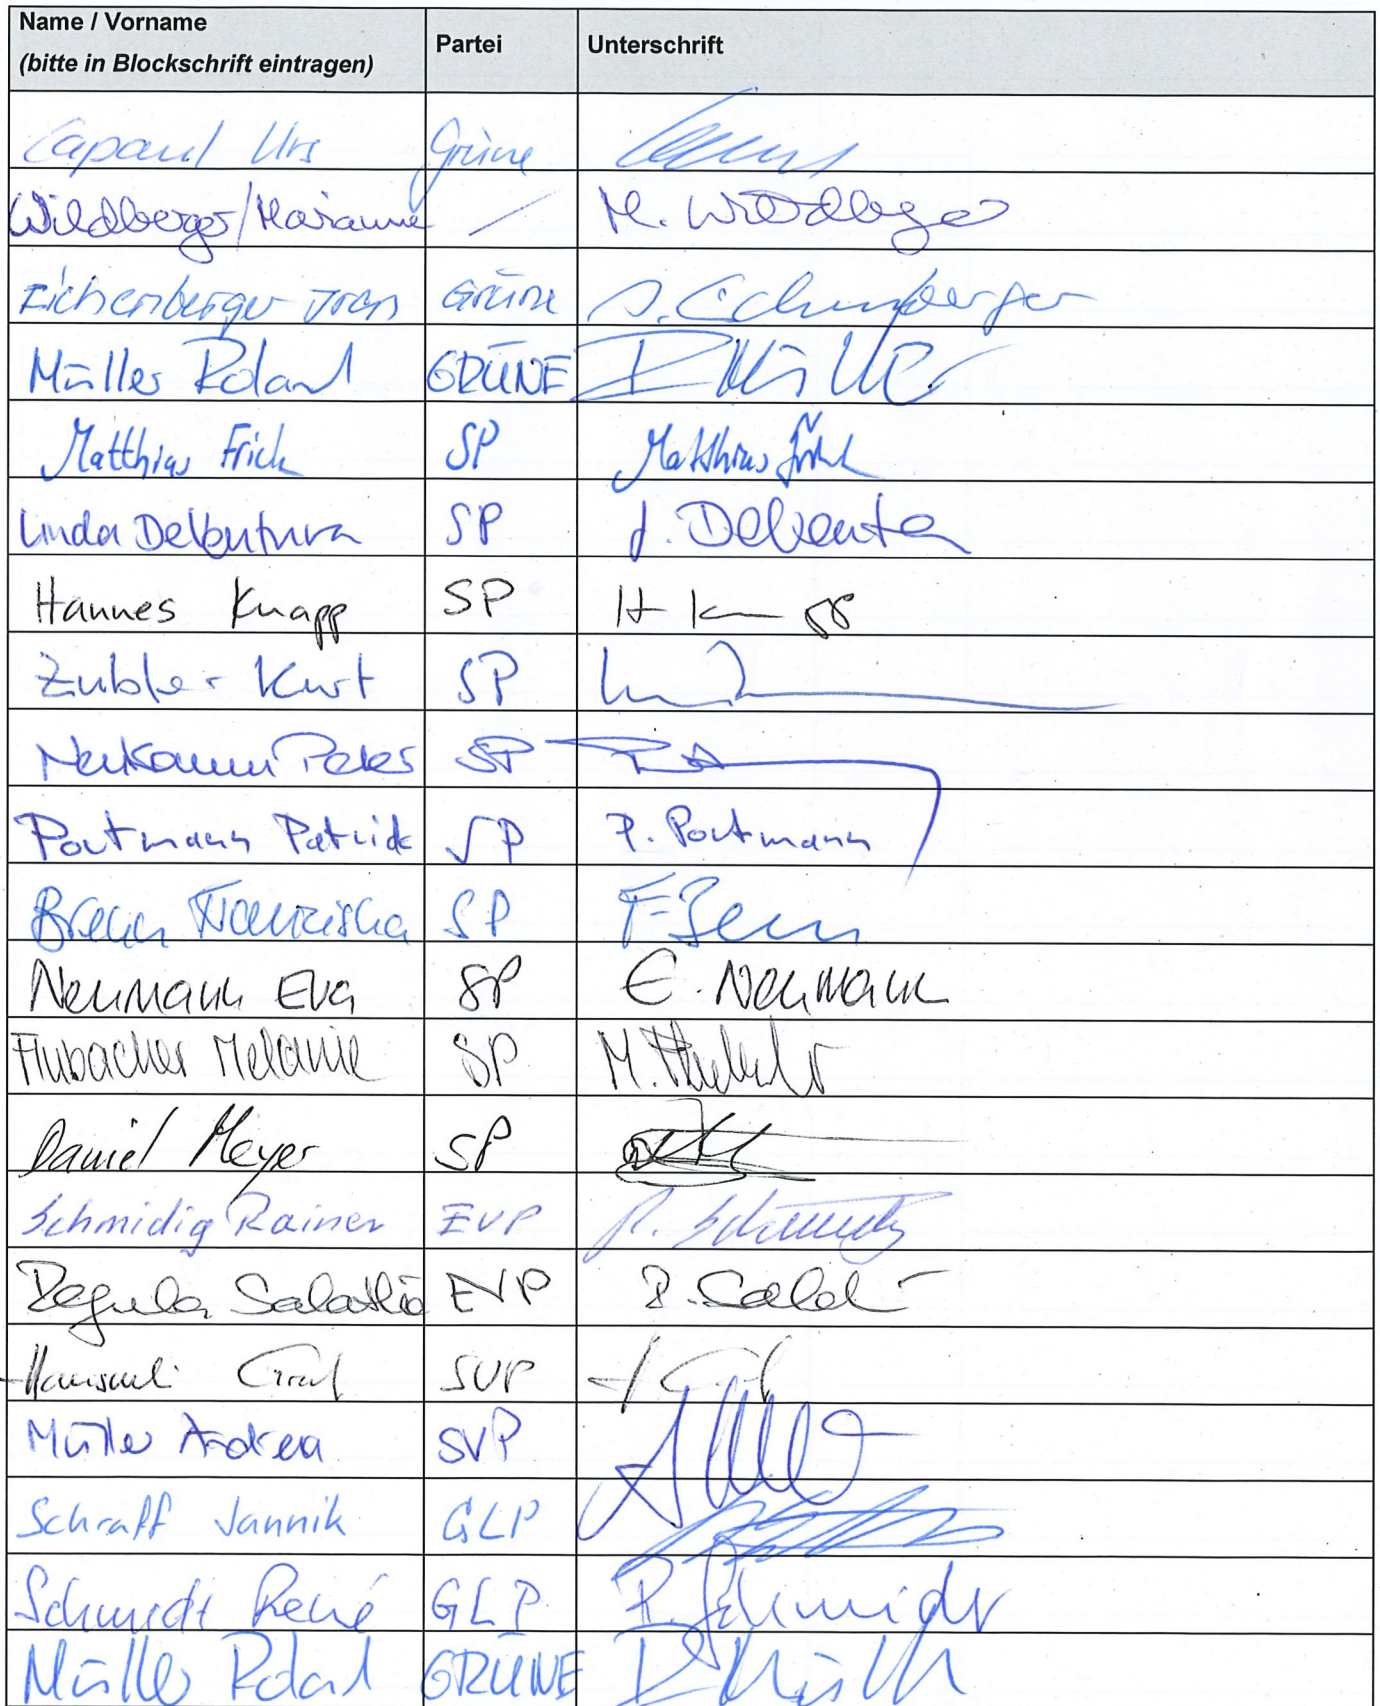 Name / Vorname Partei Unterschrift
(bitte in Blockschrift eintragen)
Capaul Urs Grüne
Wildberger/Marianne / M. Wildberger
Eichenberger Iren Grüne I. Eichenberger
Müller Roland GRÜNE R Müller
Matthias Frick SP Matthias Frick
Linda De Ventura SP L. De Ventura
Hannes Knapp SP H Knapp
Zubler Kurt SP
Neukomm Peter SP
Portmann Patrick SP P. Portmann
Brenn Franziska SP F. Brenn
Neumann Eva SP E. Neumann
Flubacher Melanie SP M. Flubacher
Daniel Meyer SP
Schmidig Rainer EVP R. Schmidig
Regula Salathé EVP R. Salathé
Hansueli Graf SVP H Graf
Müller Andrea SVP
Schraff Jannik GLP
Schmidt René GLP R. Schmidt
Müller Roland GRÜNE R Müller